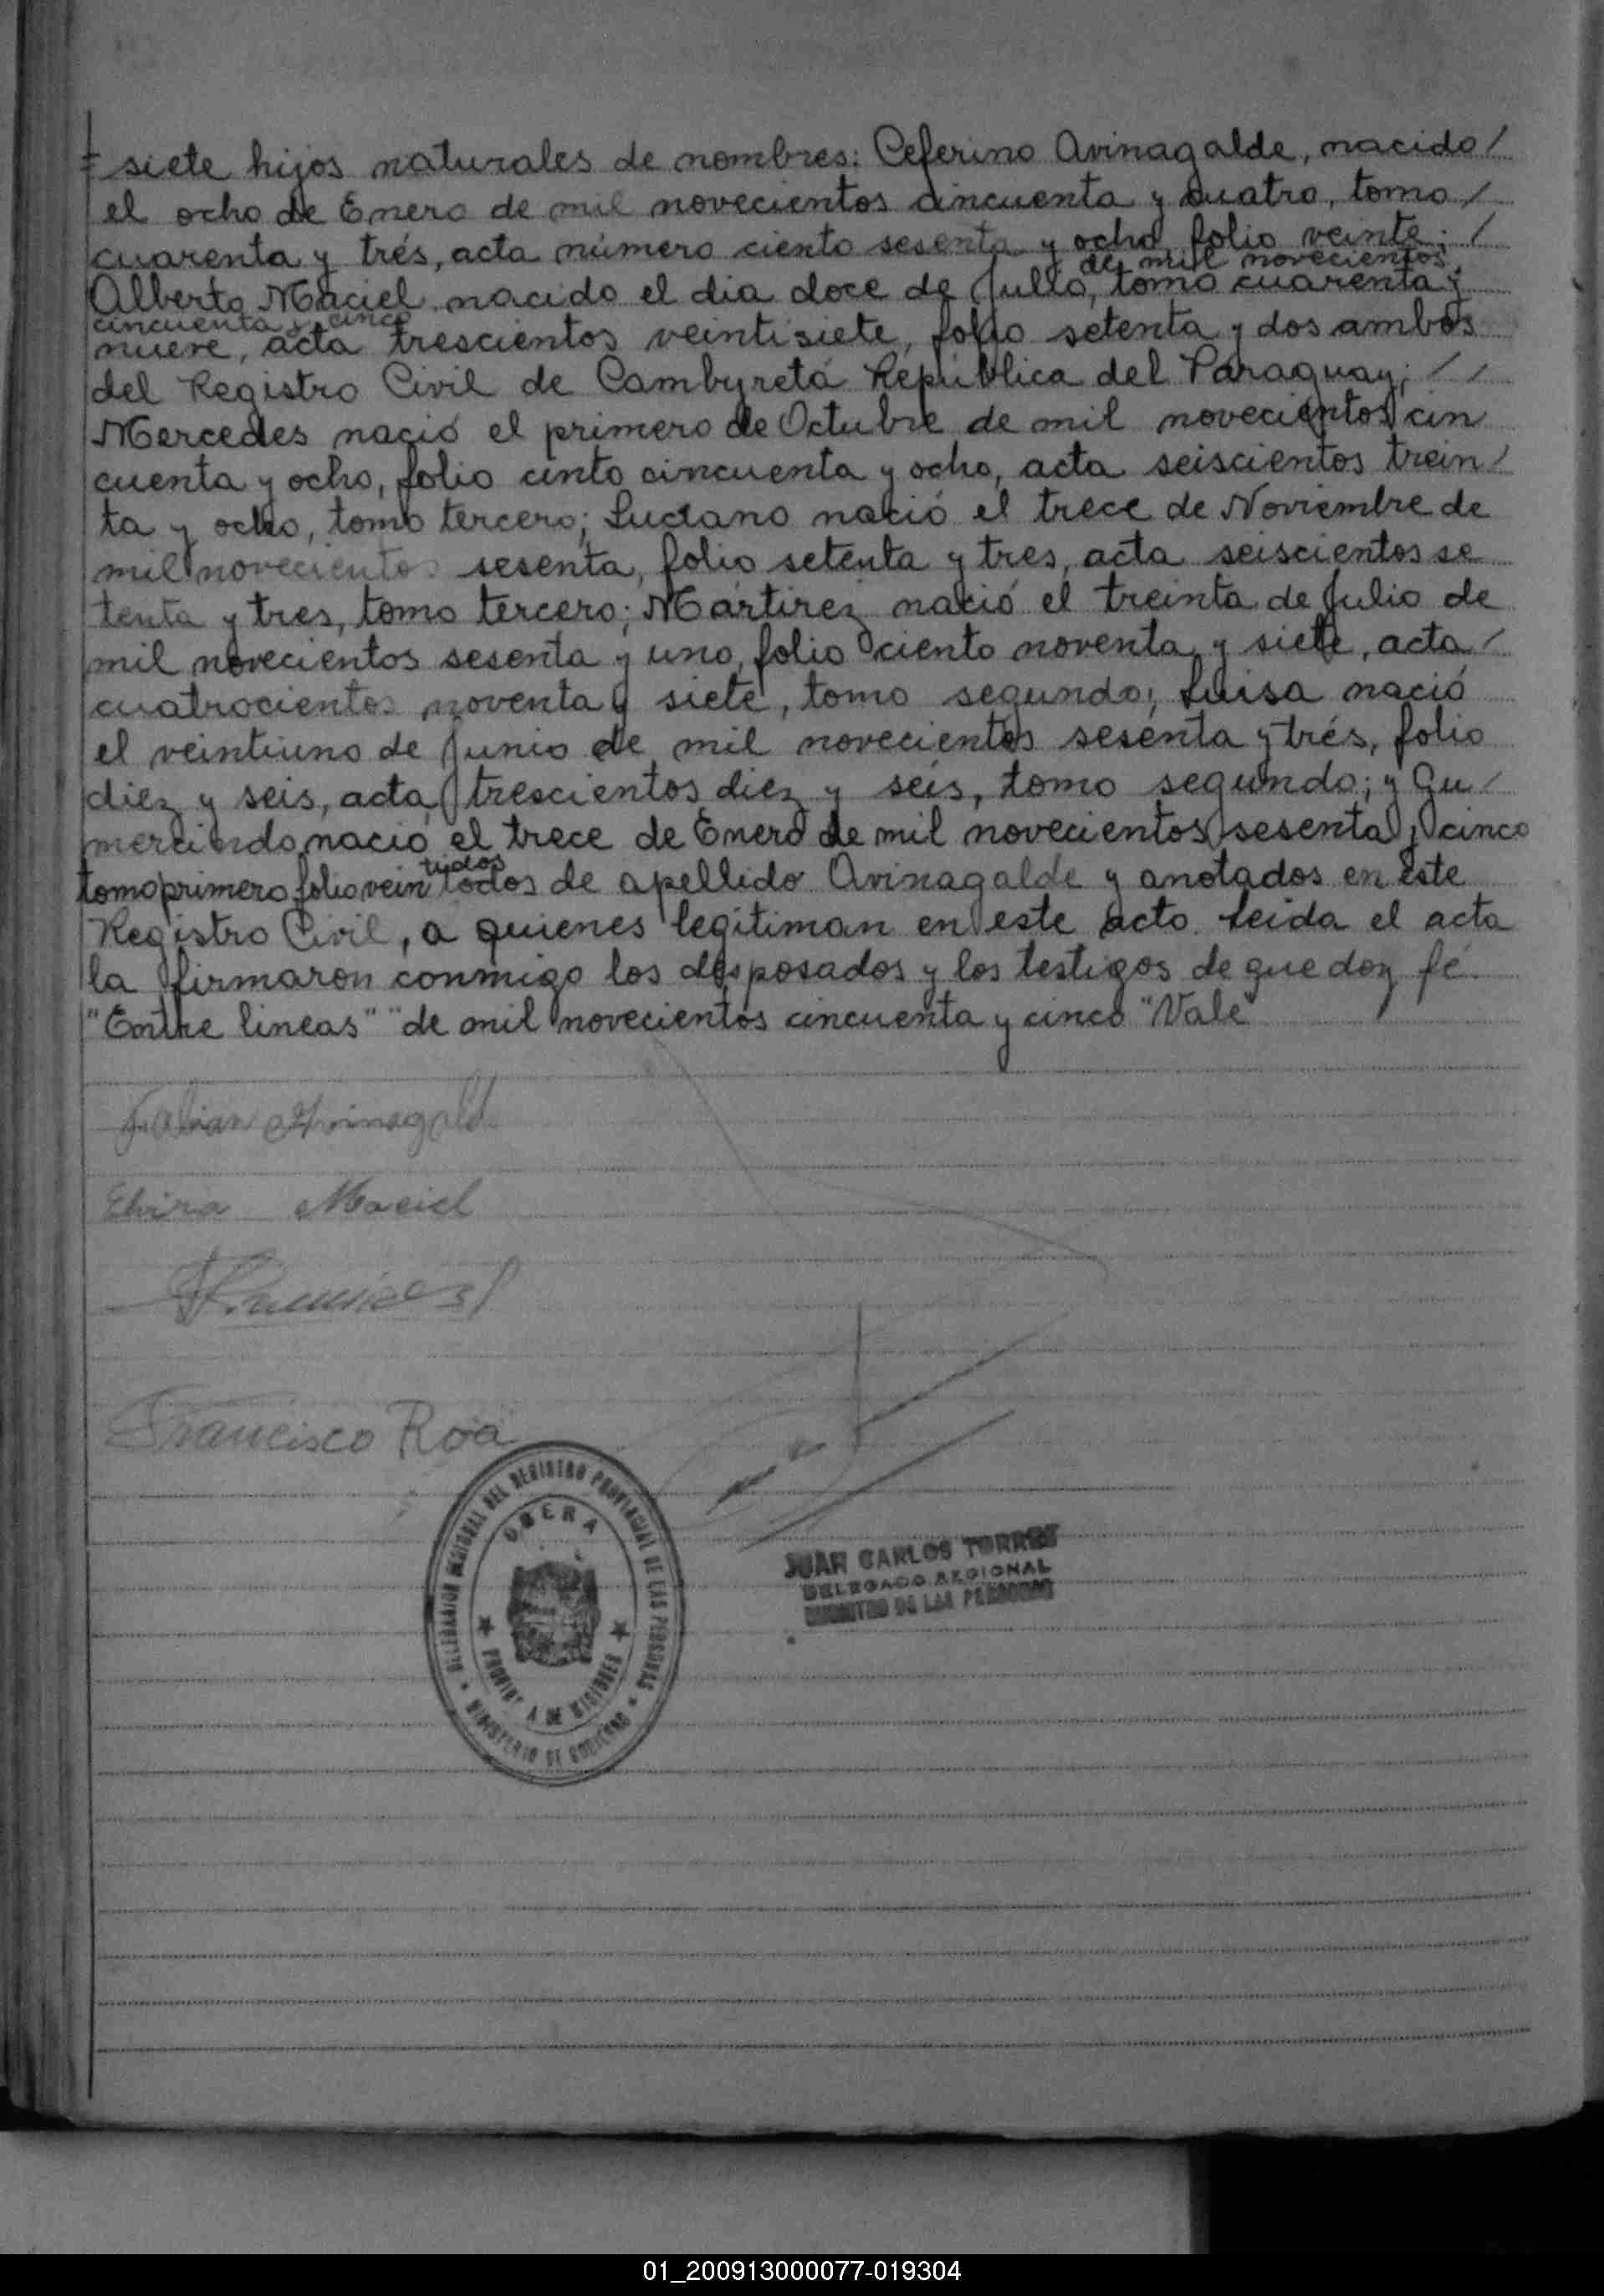 siete hijos naturales de nombres: Ceferino Avinagalde, nacido /
el ocho de Enero de mil novecientos cincuenta y cuatro, tomo /
cuarenta y trés, acta número ciento sesenta y ocho folio veinte; /
de mil novecientos
Alberto Maciel nacido el dia doce de Julio, tomo cuarenta y
cincuenta y cinco
nueve, acta trescientos veintisiete, folio setenta y dos ambos
del Registro Civil de Cambyretá República del Paraguay; / /
Mercedes nació el primero de Octubre de mil novecientos cin
cuenta y ocho, folio cinto cincuenta y ocho, acta seiscientos trein /
ta y ocho, tomo tercero; Luciano nació el trece de Noviembre de
mil novecientos sesenta, folio setenta y tres, acta seiscientos se
tenta y tres, tomo tercero; Mártirez nació el treinta de Julio de
mil novecientos sesenta y uno, folio ciento noventa y siete, acta /
cuatrocientos noventa y siete, tomo segundo; Luisa nació
el veintiuno de Junio de mil novecientos sesenta y trés, folio
diez y seis, acta trescientos diez y seis, tomo segundo; y Gu /
mercindo nació el trece de Enero de mil novecientos sesenta y cinco
tidos
tomo primero folio vein todos de apellido Avinagalde y anotados en este
Registro Civil, a quienes legitiman en este acto. Leida el acta
la firmaron conmigo los desposados y los testigos de que doy fé.
"Entre lineas" "de mil novecientos cincuenta y cinco "Vale"
Fabian Avinagalde
Elvira Maciel
Francisco Roa
DELEGACION REGIONAL DEL REGISTRO PROVINCIAL DE LAS PERSONAS
OBERA
PROVINCIA DE MISIONES
MINISTERIO DE GOBIERNO
JUAN CARLOS TORRES
DELEGADO REGIONAL
REGISTRO DE LAS PERSONAS
01_200913000077-019304